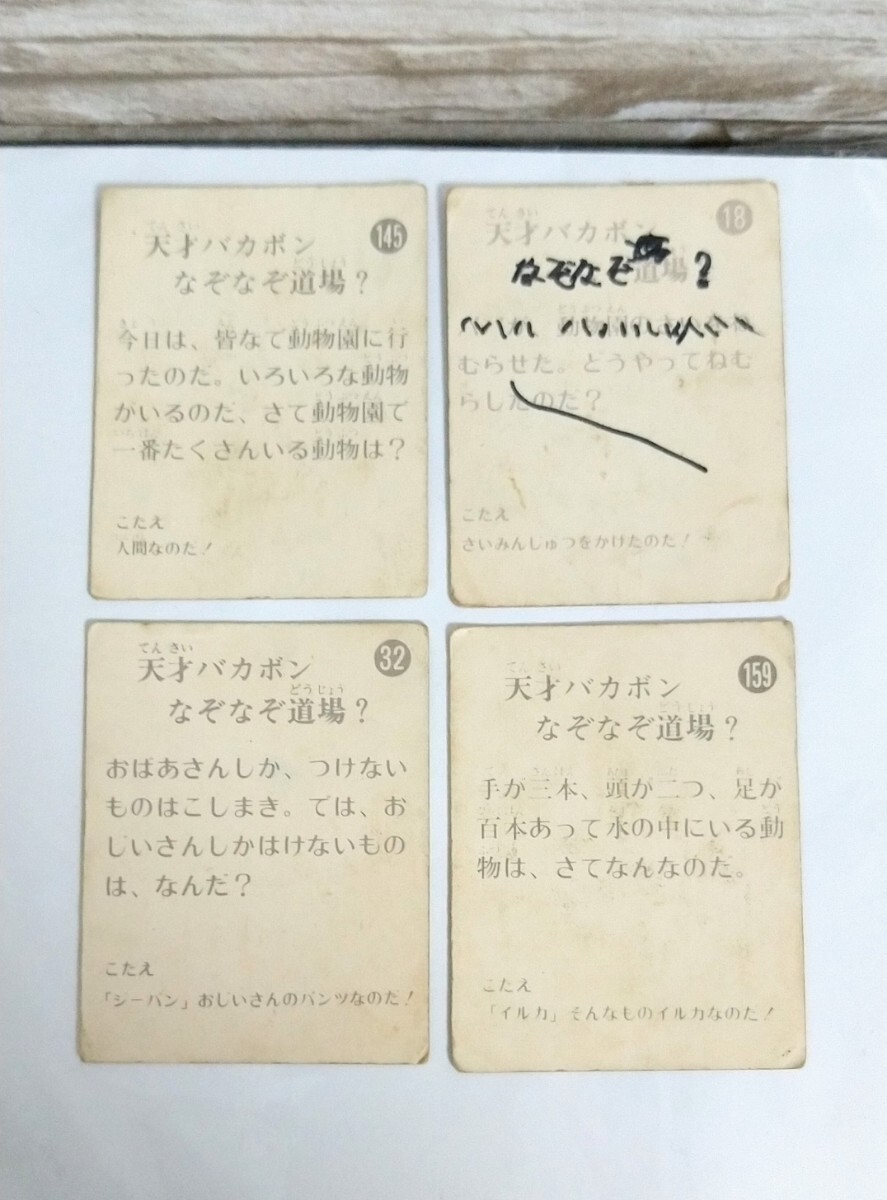 145
天才バカボン
なぞなぞ道場？
今日は、皆なで動物園に行
ったのだ。いろいろな動物
がいるのだ、さて動物園で
一番たくさんいる動物は？
こたえ
人間なのだ！
18
てんさい
天才バカボン
なぞなぞ道場？
なぞなぞ ？
動物園の
むらせた。どうやってねむ
らしたのだ？
こたえ
さいみんじゅつをかけたのだ！
32
てんさい
天才バカボン
どうじょう
なぞなぞ道場？
おばあさんしか、つけない
ものはこしまき。では、お
じいさんしかはけないもの
は、なんだ？
こたえ
「ジーパン」おじいさんのパンツなのだ！
159
てんさい
天才バカボン
どうじょう
なぞなぞ道場？
手が三本、頭が二つ、足が
百本あって水の中にいる動
物は、さてなんなのだ。
こたえ
「イルカ」そんなものイルカなのだ！